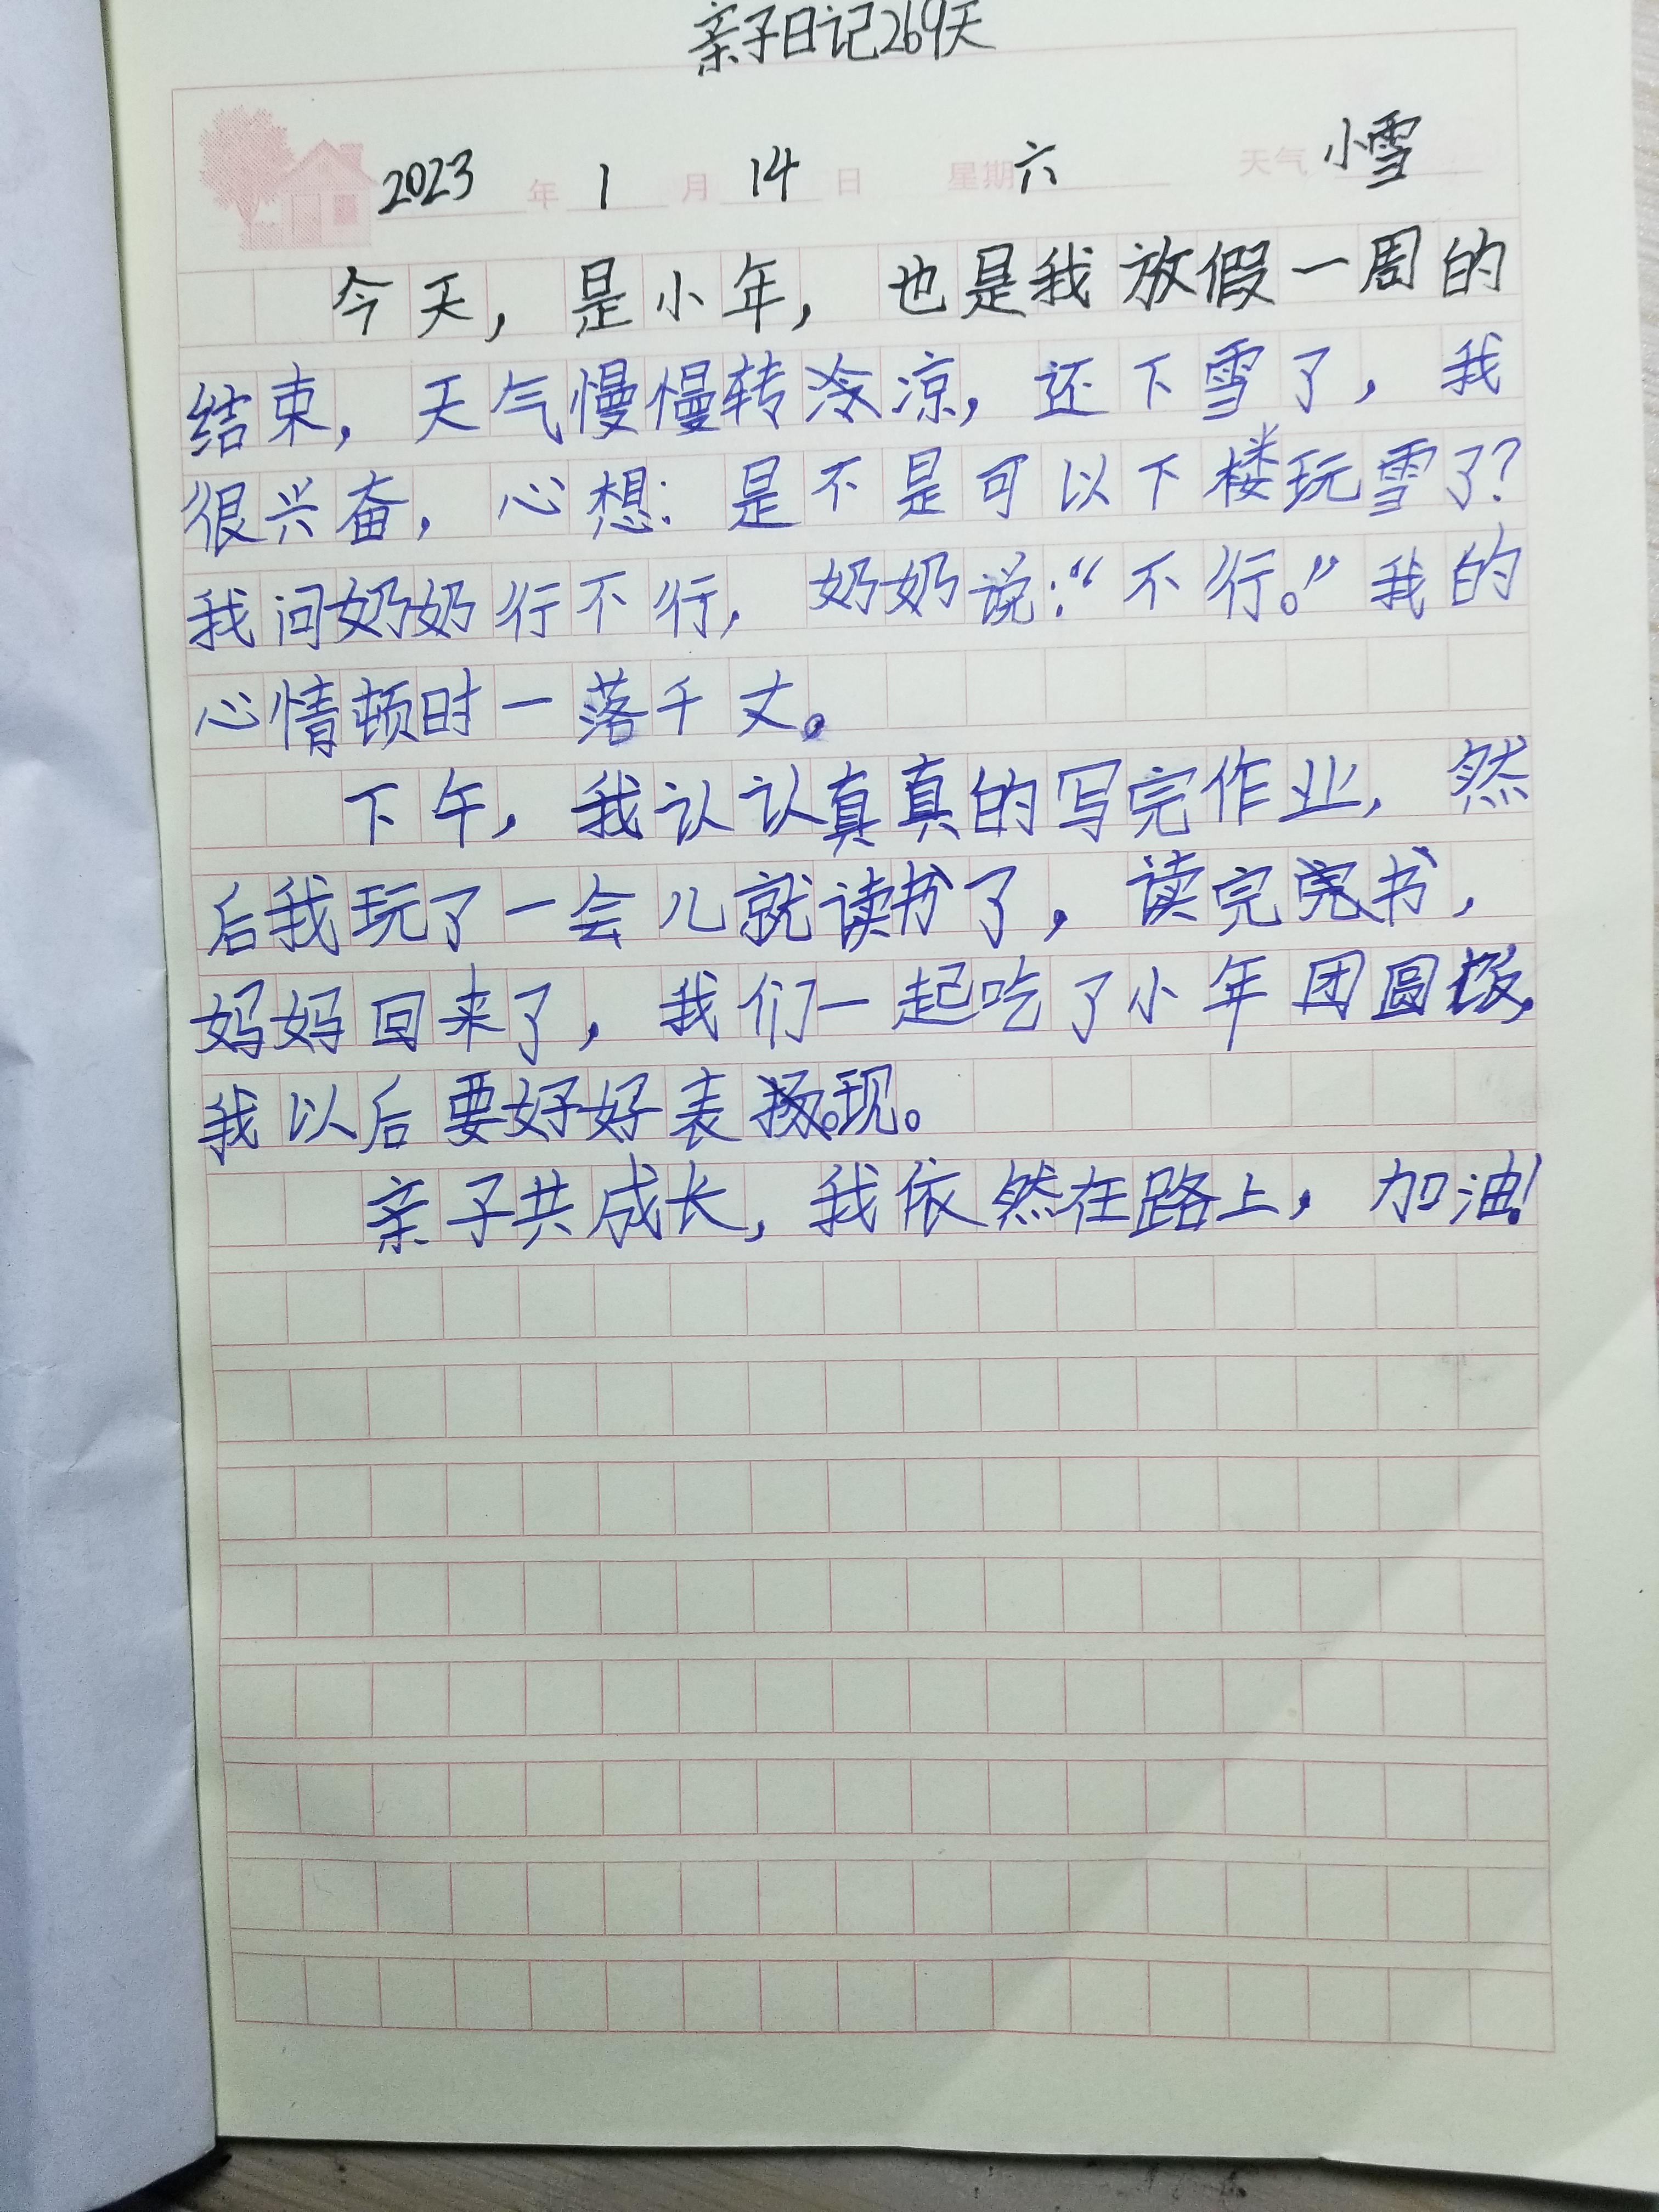 亲子日记269天
2023年1月14日 星期六 天气小雪
今天，是小年，也是我放假一周的
结束，天气慢慢转冷凉，还下雪了，我
很兴奋，心想：是不是可以下楼玩雪了？
我问奶奶行不行，奶奶说：“不行。”我的
心情顿时一落千丈。
下午，我认认真真的写完作业，然
后我玩了一会儿就读书了，读完书，
妈妈回来了，我们一起吃了小年团圆饭，
我以后要好好表现。
亲子共成长，我依然在路上，加油！